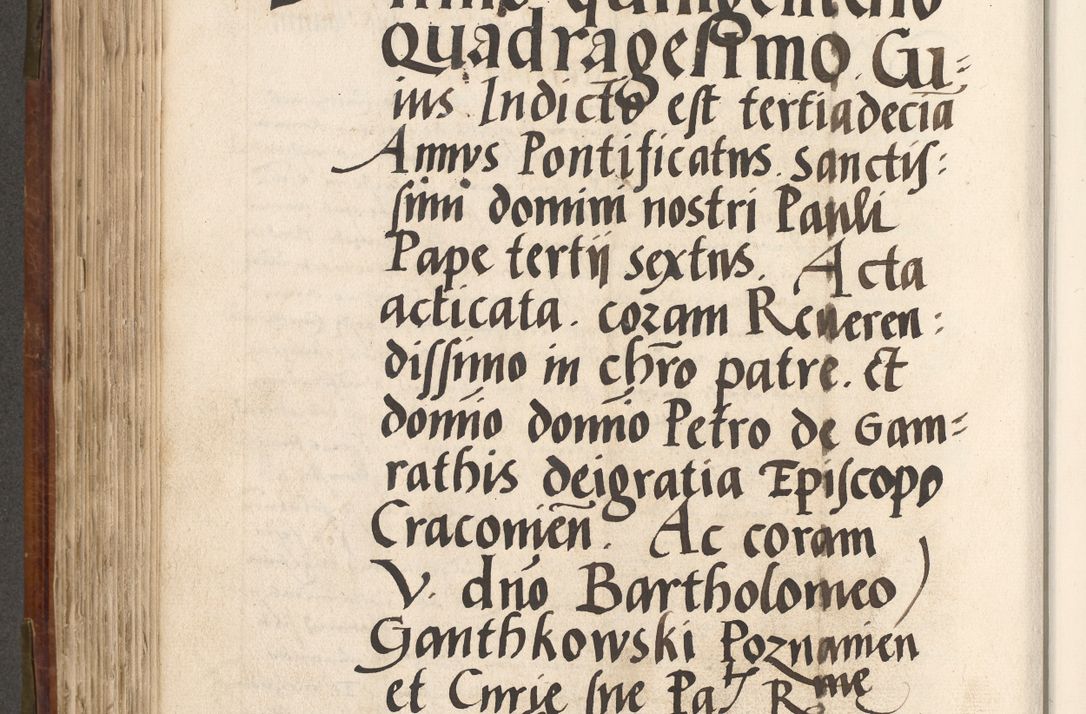 quingentesimo
quadragesimo. Cu=
ius Indictio est tertiadecīa
Annus Pontificatus. sanctis:
simi domini nostri Pauli
Pape tertij sextus. Acta
acticata. coram Reueren:
dissimo in chr̄o patre. et
domīo domīo Petro de Gam=
rathis deigratia Episcopo
Cracouien̄. Ac coram
V. dn̄o Bartholomeo
Ganthkowski Poznanien
et Curie sue Pa^tis R^me